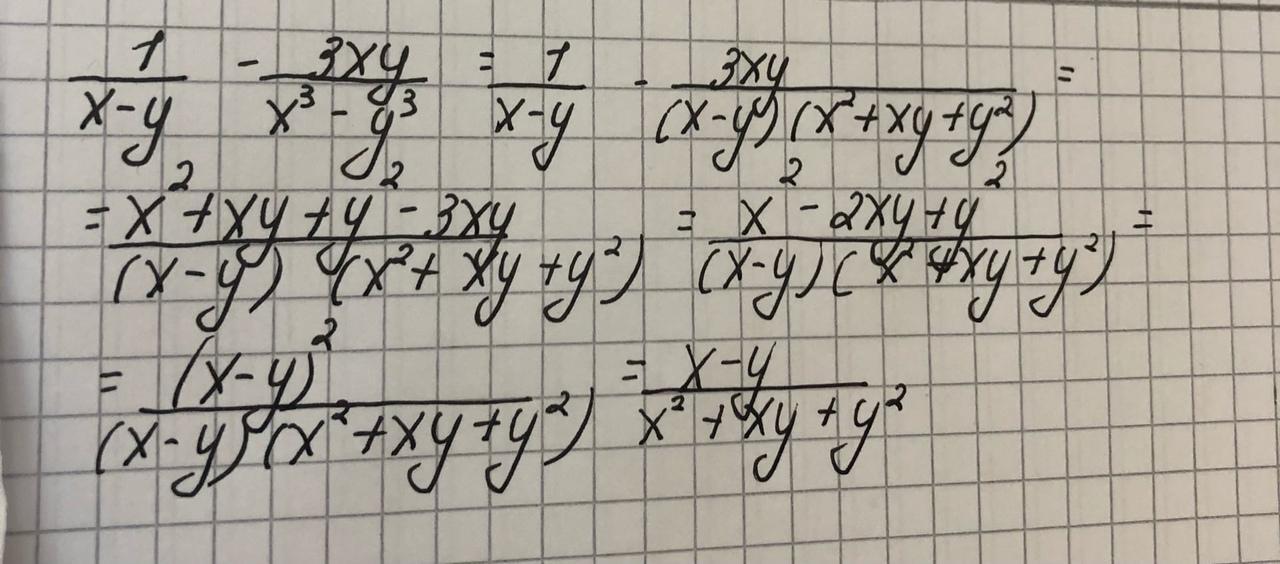 1/(x-y) - 3xy/(x³-y³) = 1/(x-y) - 3xy/((x-y)(x²+xy+y²)) =
= (x²+xy+y²-3xy)/((x-y)(x²+xy+y²)) = (x²-2xy+y²)/((x-y)(x²+xy+y²)) =
= (x-y)²/((x-y)(x²+xy+y²)) = (x-y)/(x²+xy+y²)